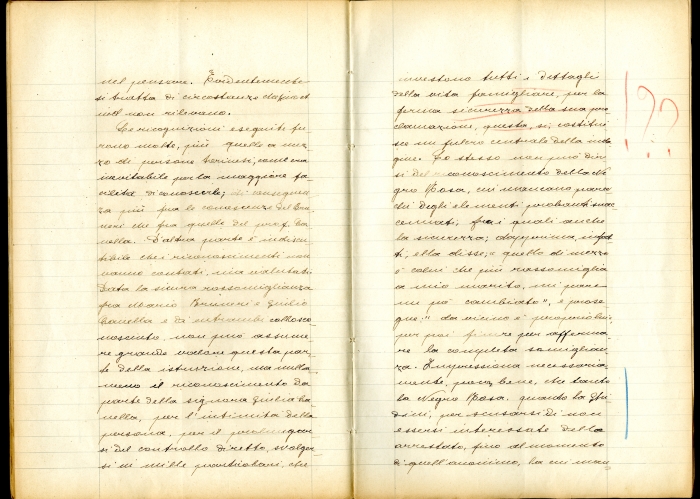 nel pensiero. Evidentemente
si tratta di circostanze
che non rilevano.
Le ricognizioni eseguite fu-
rono molte, più quelle a mez-
zo di persone torinesi, com'era
inevitabile per la maggiore fa-
cilità di conoscerle; di conseguen-
za più fra le conoscenze del Bru-
neri che fra quelle del prof. Ca-
nella. D'altra parte è indiscu-
tibile che i riconoscimenti non
vanno contati, ma valutati.
Data la sicura rassomiglianza
fra Mario Bruneri e Giulio
Canella e di entrambi collo sco-
nosciuto, non può assume-
re grande valore questa par-
te della istruzione, ma nulla-
meno il riconoscimento da
parte della signora Giulia Ca-
nella, per l'intimità della
persona, per il prolungar-
si del controllo diretto, svolger-
si in mille particolari, che
investono tutti i dettagli
della vita famigliare, per la
ferma sicurezza della sua pro-
clamazione, questa, sì, costitui-
sce un fulcro centrale della inda-
gine. Lo stesso non può dir-
si del riconoscimento della Ne-
gro Rosa, cui mancano parec-
chi degli elementi probanti su ac-
cennati, fra i quali anche
la sicurezza; dapprima, infat-
ti, ella disse: "quello di mezzo
è colui che più rassomiglia
a mio marito, mi pare
un po' cambiato", e prose-
gue: "da vicino è proprio lui
per poi finire per afferma-
re la completa somiglian-
za. Impressiona necessaria-
mente, però, bene, che tanto
la Negro Rosa, quanto la Ghi-
dini, per scusarsi di non
essersi interessate dello
arrestato, fino al momento
di quell'anonimo, la cui man
!??